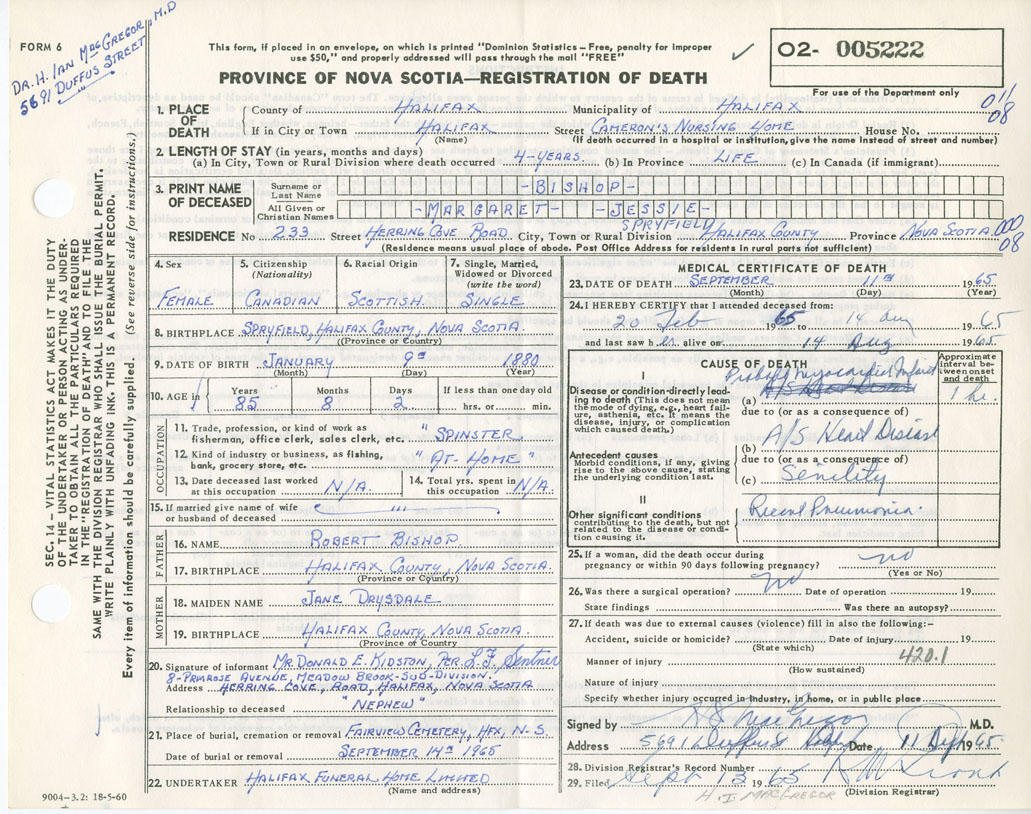 DR. H. IAN MACGREGOR M.D
5691 DUFFUS STREET
FORM 6
This form, if placed in an envelope, on which is printed "Dominion Statistics – Free, penalty for improper
use $50," and properly addressed will pass through the mail "FREE"
PROVINCE OF NOVA SCOTIA—REGISTRATION OF DEATH
O2- 005222
For use of the Department only
011
08
SEC. 14 – VITAL STATISTICS ACT MAKES IT THE DUTY
OF THE UNDERTAKER OR PERSON ACTING AS UNDER-
TAKER TO OBTAIN ALL THE PARTICULARS REQUIRED
IN THE "REGISTRATION OF DEATH" AND TO FILE THE
SAME WITH THE DIVISION REGISTRAR WHO SHALL ISSUE THE BURIAL PERMIT.
WRITE PLAINLY WITH UNFADING INK. THIS IS A PERMANENT RECORD.
Every item of information should be carefully supplied. (See reverse side for instructions.)
1. PLACE OF DEATH County of HALIFAX Municipality of HALIFAX
If in City or Town HALIFAX Street CAMERON'S NURSING HOME House No.
(Name) (If death occurred in a hospital or institution, give the name instead of street and number)
2. LENGTH OF STAY (in years, months and days)
(a) In City, Town or Rural Division where death occurred 4-YEARS. (b) In Province LIFE (c) In Canada (if immigrant)
3. PRINT NAME OF DECEASED Surname or Last Name -BISHOP-
All Given or Christian Names -MARGARET- -JESSIE-
RESIDENCE No 233 Street HERRING COVE ROAD City, Town or Rural Division SPRYFIELD HALIFAX COUNTY Province NOVA SCOTIA. 000
08
(Residence means usual place of abode. Post Office Address for residents in rural parts not sufficient)
4. Sex FEMALE
5. Citizenship (Nationality) CANADIAN
6. Racial Origin SCOTTISH
7. Single, Married, Widowed or Divorced (write the word) SINGLE
8. BIRTHPLACE SPRYFIELD, HALIFAX COUNTY, NOVA SCOTIA.
(Province or Country)
9. DATE OF BIRTH JANUARY 9TH 1880
(Month) (Day) (Year)
10. AGE in Years 85 Months 8 Days 2 If less than one day old hrs. or min.
OCCUPATION
11. Trade, profession, or kind of work as
fisherman, office clerk, sales clerk, etc. "SPINSTER"
12. Kind of industry or business, as fishing,
bank, grocery store, etc. "AT-HOME"
13. Date deceased last worked
at this occupation N/A.
14. Total yrs. spent in
this occupation N/A.
15. If married give name of wife
or husband of deceased
FATHER
16. NAME ROBERT BISHOP
17. BIRTHPLACE HALIFAX COUNTY, NOVA SCOTIA.
(Province or Country)
MOTHER
18. MAIDEN NAME JANE DRYSDALE
19. BIRTHPLACE HALIFAX COUNTY, NOVA SCOTIA
(Province of Country)
20. Signature of informant MR. DONALD E. KIDSTON, PER. L.F.
8-PRIMROSE AVENUE, MEADOW BROOK-SUB-DIVISION.
Address HERRING COVE, ROAD, HALIFAX, NOVA SCOTIA
Relationship to deceased "NEPHEW"
21. Place of burial, cremation or removal FAIRVIEW CEMETERY, HFX, N-S.
Date of burial or removal SEPTEMBER 14TH 1965
22. UNDERTAKER HALIFAX FUNERAL HOME LIMITED
(Name and address)
9004-3.2: 18-5-60
MEDICAL CERTIFICATE OF DEATH
23. DATE OF DEATH SEPTEMBER 11TH 1965
(Month) (Day) (Year)
24. I HEREBY CERTIFY that I attended deceased from:
20 Feb 1965 to 14 Aug 1965
and last saw her alive on 14 Aug 1965
CAUSE OF DEATH
Approximate interval between onset and death
I
Disease or condition-directly leading
to death (This does not mean
the mode of dying, e.g., heart failure,
asthenia, etc. It means the
disease, injury, or complication
which caused death.)
(a) Probable Myocardial Infarct 1 hr.
due to (or as a consequence of
(b) A/S Heart Disease
Antecedent causes
Morbid conditions, if any, giving
rise to the above cause, stating
the underlying condition last.
due to (or as a consequence of
(c) Senility
II
Other significant conditions
contributing to the death, but not
related to the disease or condition
causing it.
Recent Pneumonia.
25. If a woman, did the death occur during
pregnancy or within 90 days following pregnancy? no
(Yes or No)
26. Was there a surgical operation? no Date of operation 19
State findings Was there an autopsy?
27. If death was due to external causes (violence) fill in also the following:-
Accident, suicide or homicide? Date of injury 19
(State which)
420.1
Manner of injury
(How sustained)
Nature of injury
Specify whether injury occurred in industry, in home, or in public place
Signed by H I MacGregor M.D.
Address 5691 Duffus St Date 11 Sep 1965
28. Division Registrar's Record Number
29. Filed Sept 13 1965
H. I. MACGREGOR (Division Registrar)